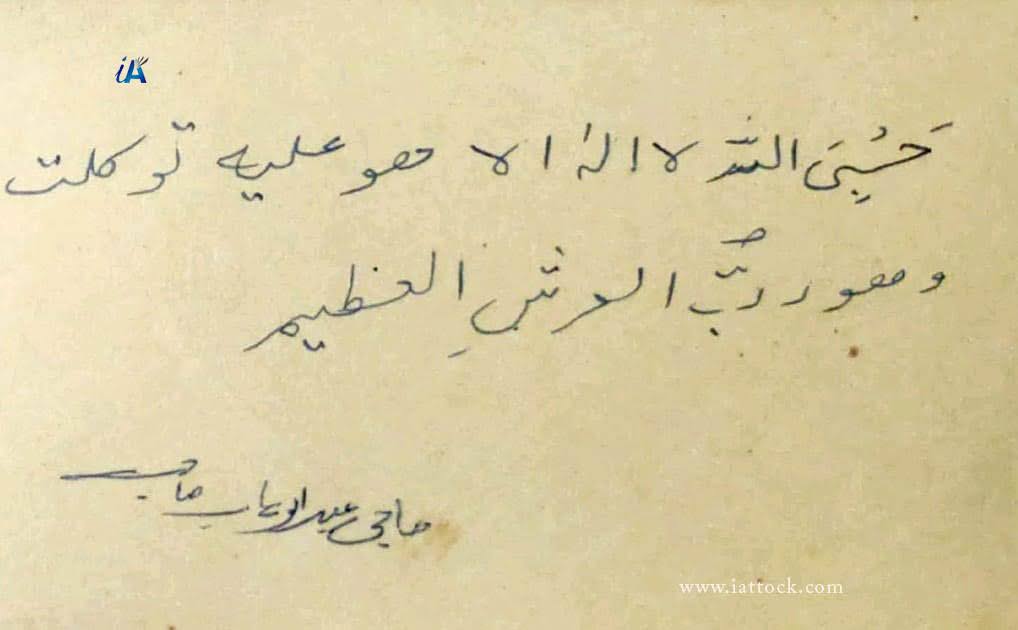 iA
حَسْبِیَ اللہ لا الہٰ الا ھو علیہ توکلت
و ھو ربُّ العرشِ العظیم
حاجی عبدالوھاب صاحب
www.iattock.com